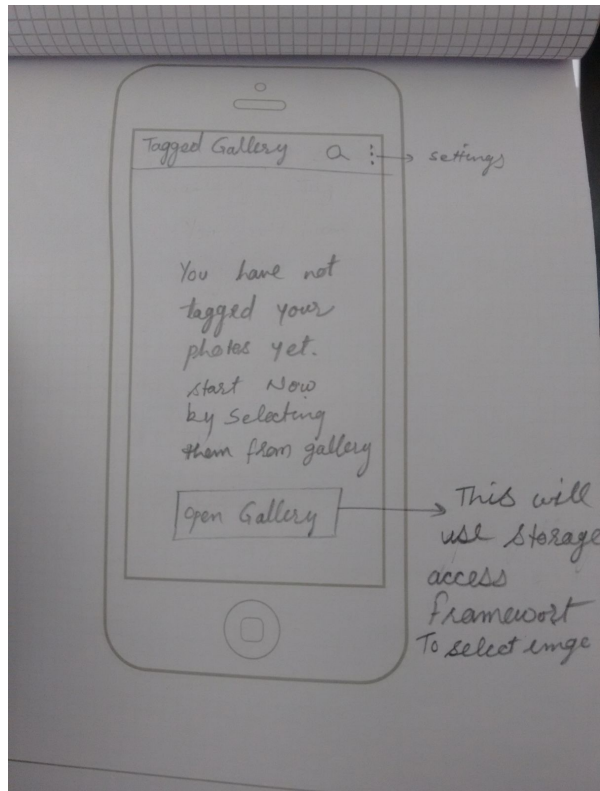 Tagged Gallery
settings
You have not
tagged your
photos yet.
start Now
by selecting
them from gallery
Open Gallery
This will
use Storage
access
framewort
To select imge